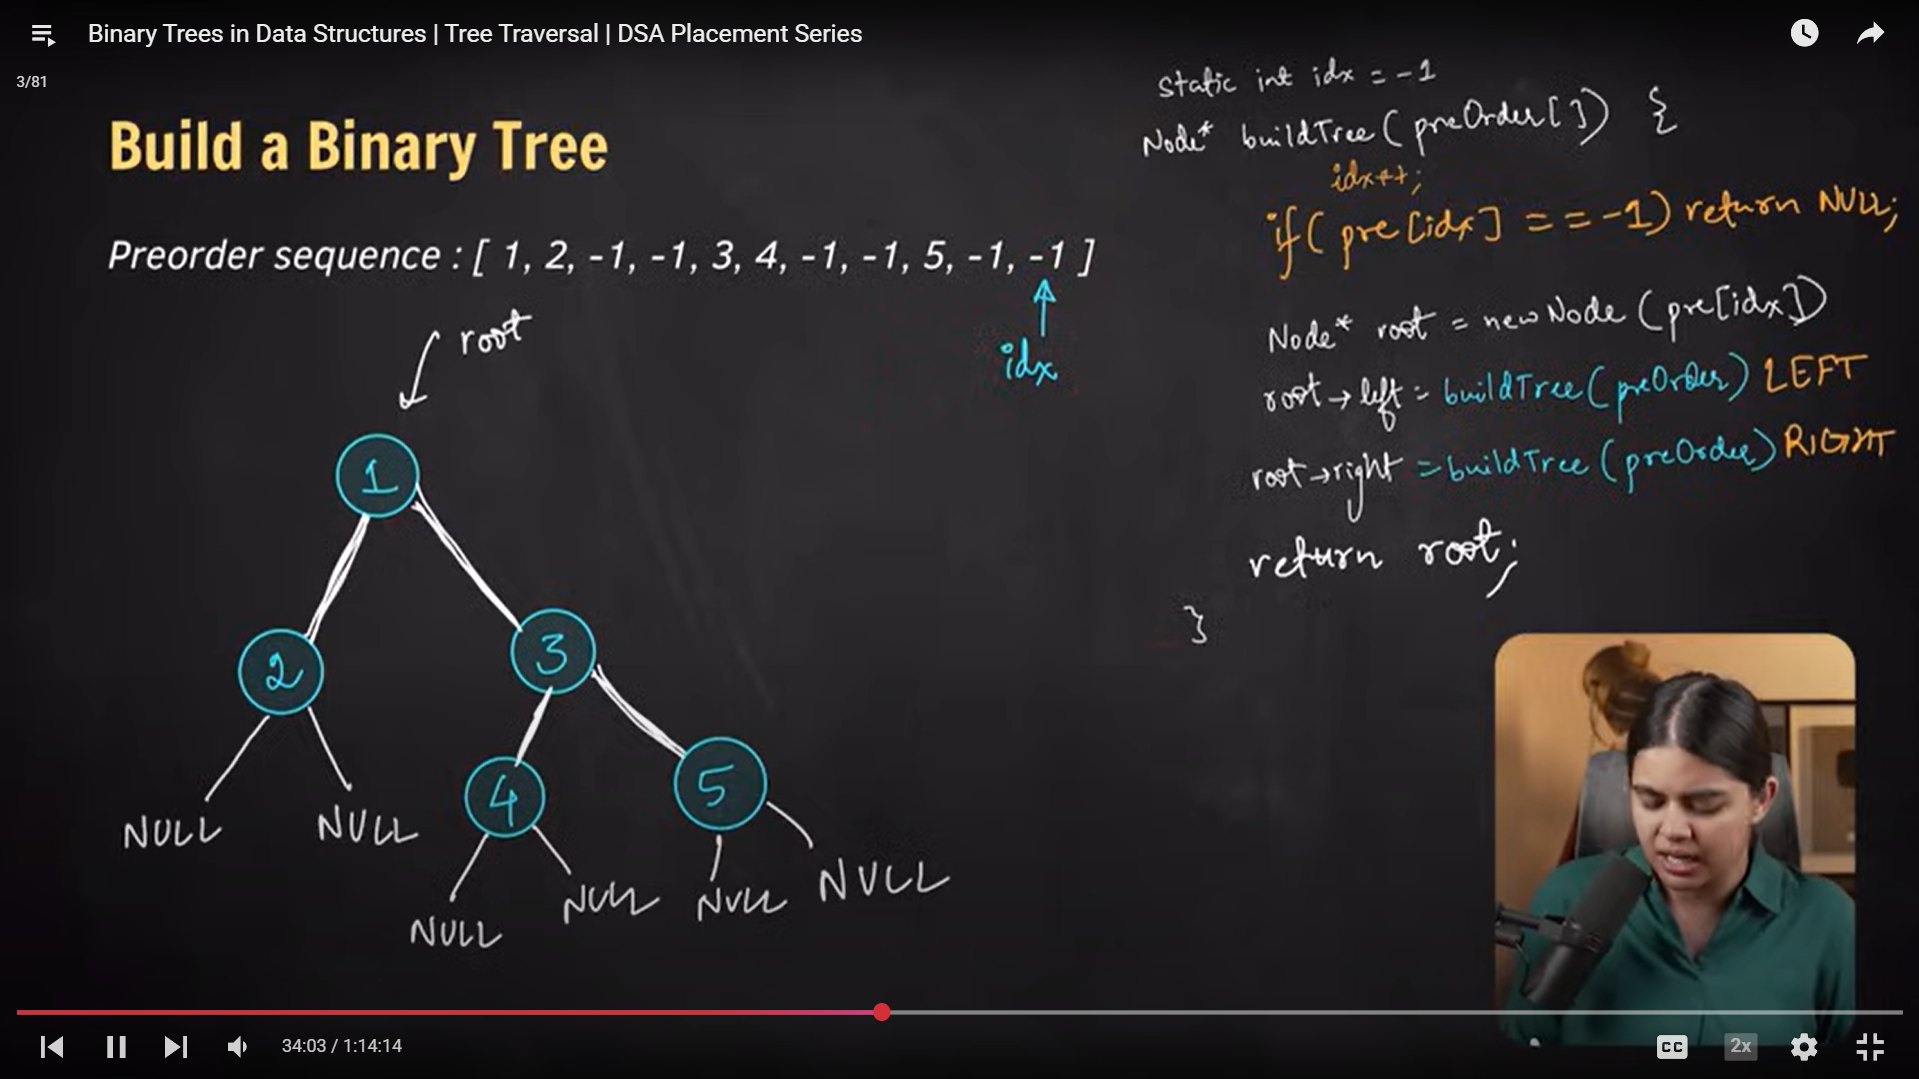 Binary Trees in Data Structures | Tree Traversal | DSA Placement Series
3/81
Build a Binary Tree
Preorder sequence : [ 1, 2, -1, -1, 3, 4, -1, -1, 5, -1, -1 ]
idx
root
1
2
3
4
5
NULL
NULL
NULL
NULL
NULL
NULL
static int idx = -1
Node* buildTree (preOrder[]) {
idx++;
if( pre[idx] == -1) return NULL;
Node* root = new Node (pre[idx])
root→left = buildTree (preOrder) LEFT
root→right = buildTree (preOrder) RIGHT
return root;
}
34:03 / 1:14:14
CC
2x